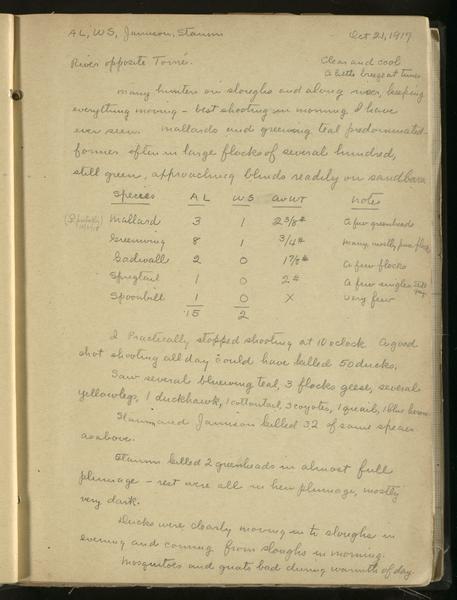 AL, WS, Jamison, Stamm Oct 21, 1917
River opposite Tomé. Clear and cool
a little breeze at times
Many hunters on sloughs and along river, keeping
everything moving - best shooting in morning I have
ever seen. Mallards and greenwing teal predominated -
former often in large flocks of several hundred,
still green, approaching blinds readily on sandbars
Species AL WS Av WT Notes
Mallard 3 1 2 3/8 # a few greenheads
Greenwing 8 1 3/4 # many, mostly pure flocks
Gadwall 2 0 1 7/8 # a few flocks
Sprigtail 1 0 2 # a few singles
Spoonbill 1 0 X very few
15 2
I Practically stopped shooting at 10 oclock a good
shot shooting all day could have killed 50 ducks.
Saw several bluewing teal, 3 flocks geese, several
yellowlegs, 1 duckhawk, 1 cottontail, 3 coyotes, 1 quail, 1 blue heron
Stamm and Jamison killed 32 of same species
as above.
Stamm killed 2 greenheads in almost full
plumage - rest were all in hen plumage, mostly
very dark.
Ducks were clearly moving in to sloughs in
evening and coming from sloughs in morning.
Mosquitoes and gnats bad during warmth of day.